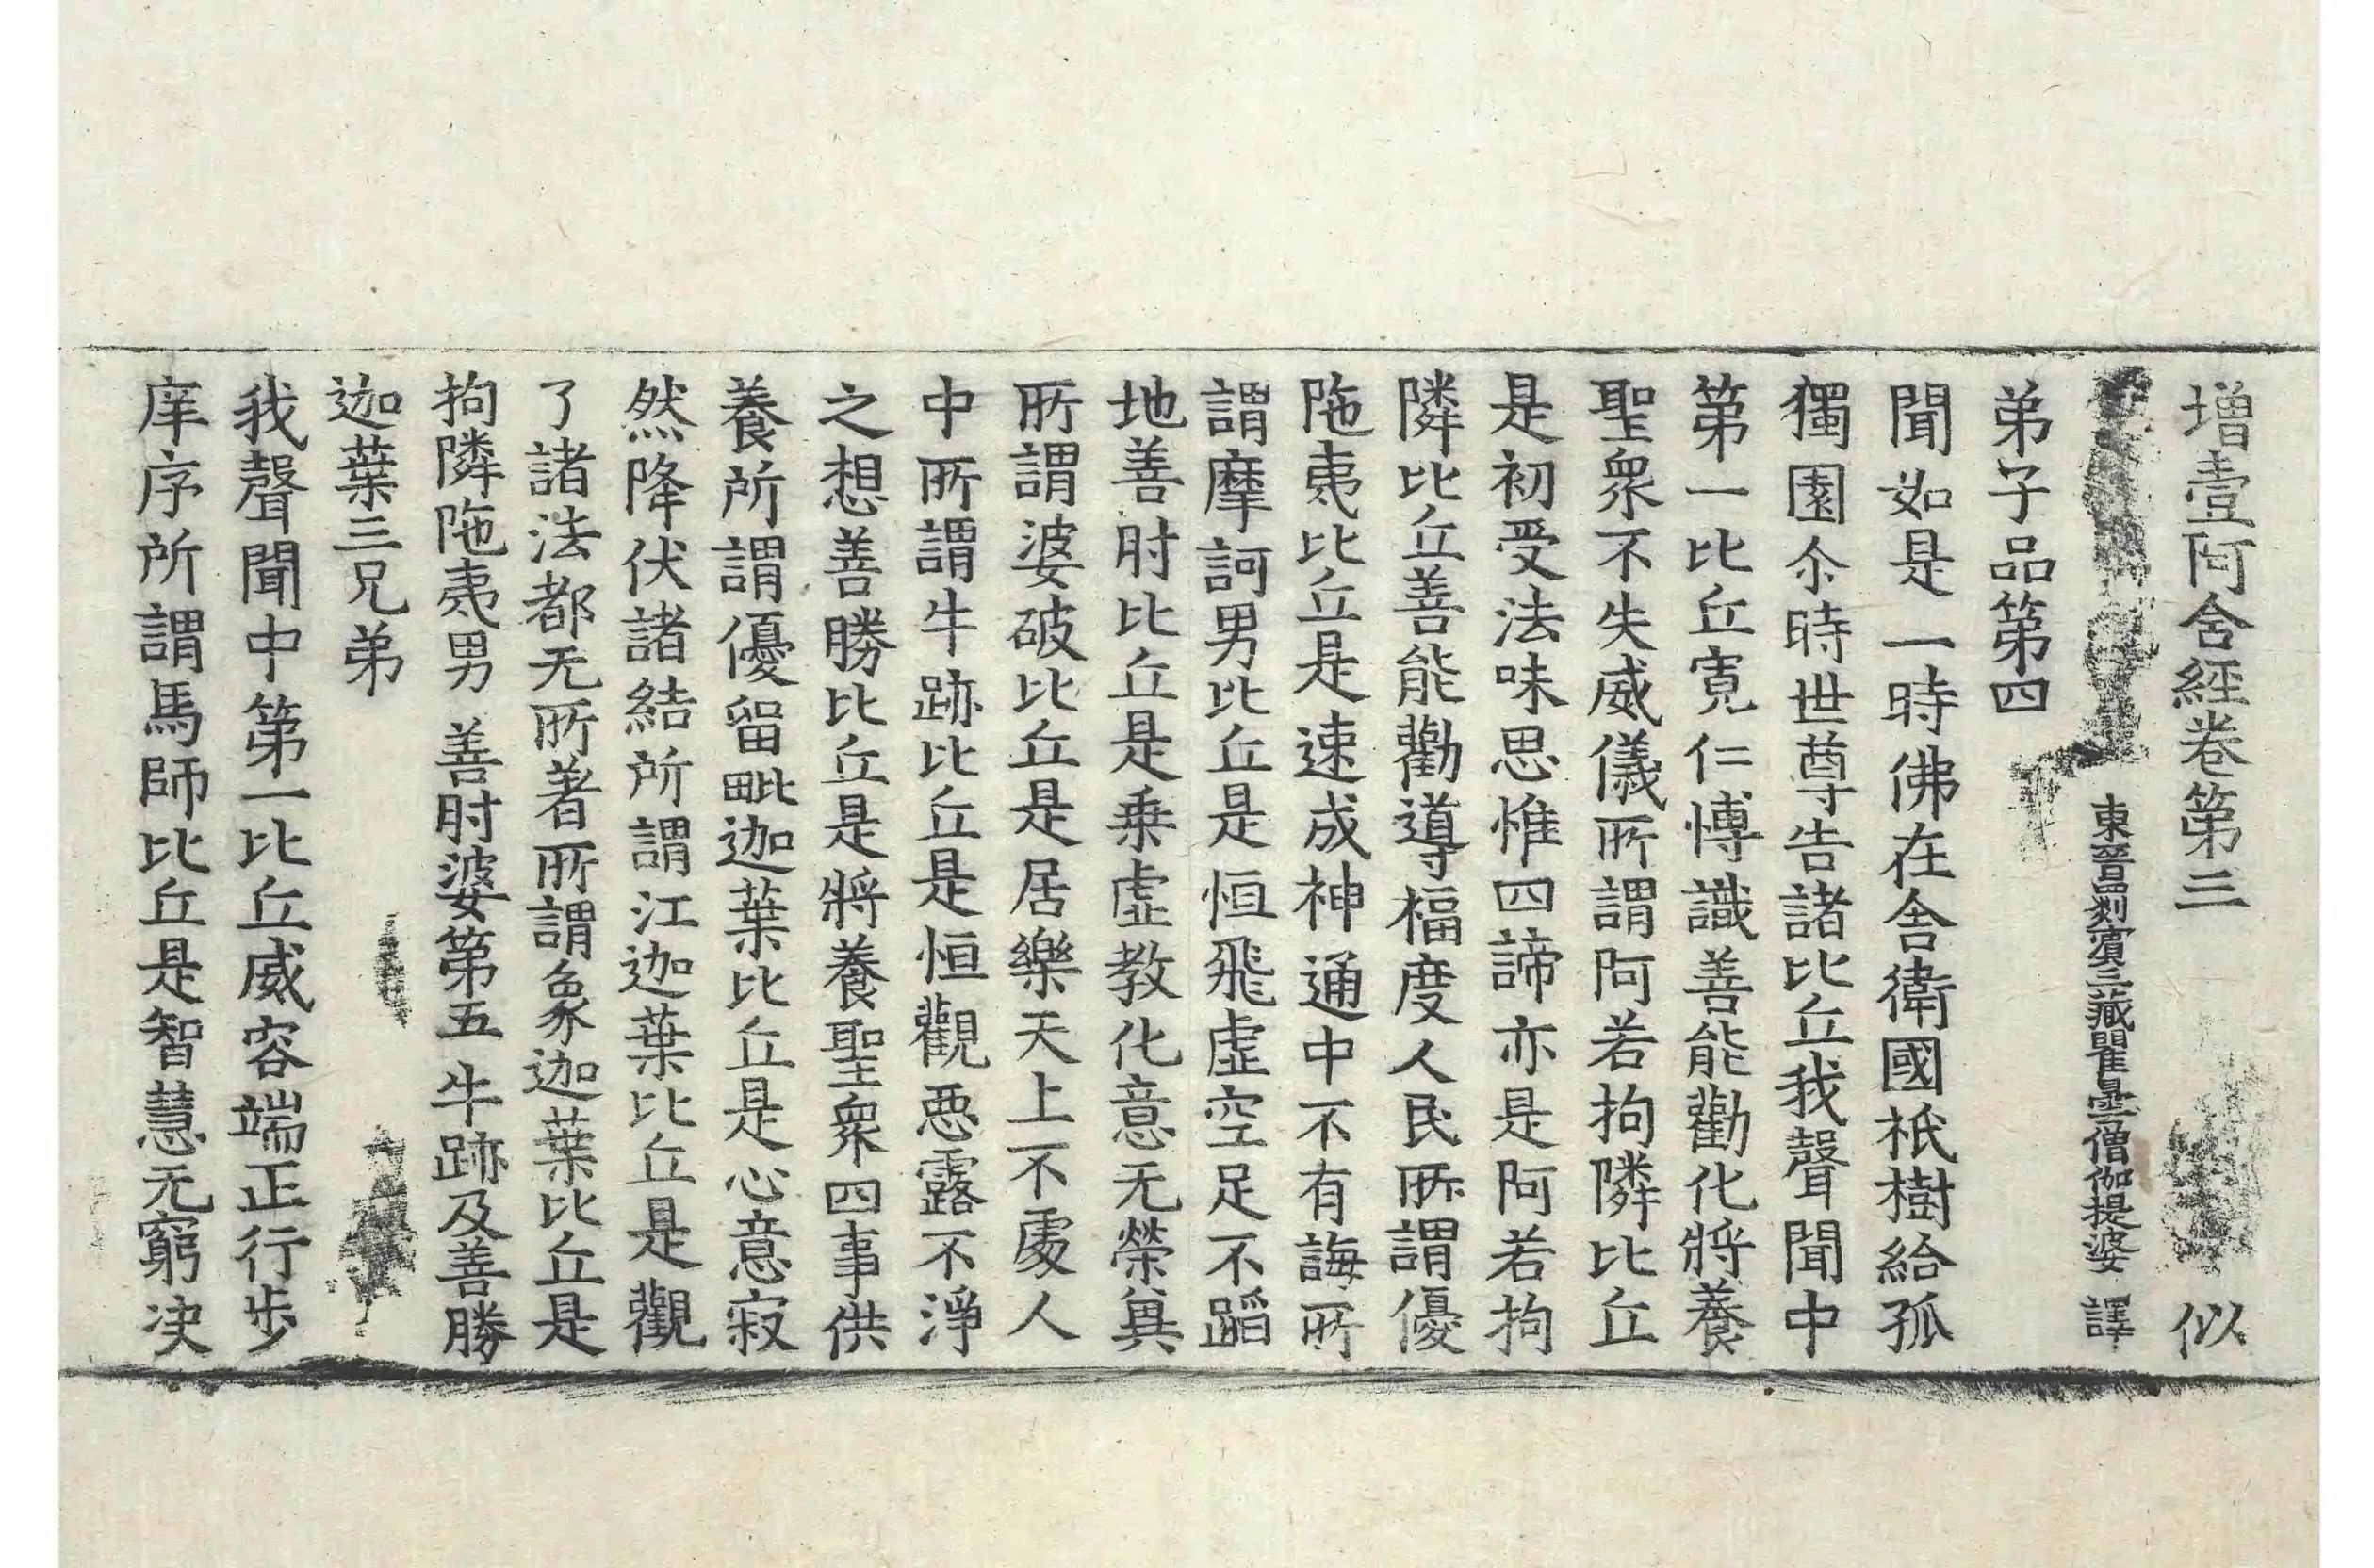 增壹阿含經卷第三 似
東晉罽賓三藏瞿曇僧伽提婆 譯
弟子品第四
聞如是一時佛在舍衛國祇樹給孤
獨園尒時世尊告諸比丘我聲聞中
第一比丘寬仁博識善能勸化將養
聖衆不失威儀所謂阿若拘隣比丘
是初受法味思惟四諦亦是阿若拘
隣比丘善能勸導福度人民所謂優
陁夷比丘是速成神通中不有誨所
謂摩訶男比丘是恒飛虛空足不蹈
地善肘比丘是乘虛教化意无榮兾
所謂婆破比丘是居樂天上不處人
中所謂牛跡比丘是恒觀惡露不淨
之想善勝比丘是將養聖衆四事供
養所謂優留毗迦葉比丘是心意寂
然降伏諸結所謂江迦葉比丘是觀
了諸法都无所著所謂象迦葉比丘是
拘隣陁夷男 善肘婆第五 牛跡及善勝
迦葉三兄弟
我聲聞中第一比丘威容端正行步
庠序所謂馬師比丘是智慧无窮决